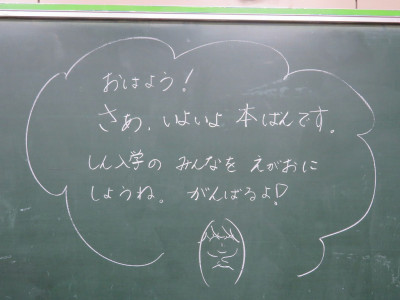 おはよう!
さあ、いよいよ 本ばんです。
しん入学の みんなを えがおに
しょうね。 がんばるよ!